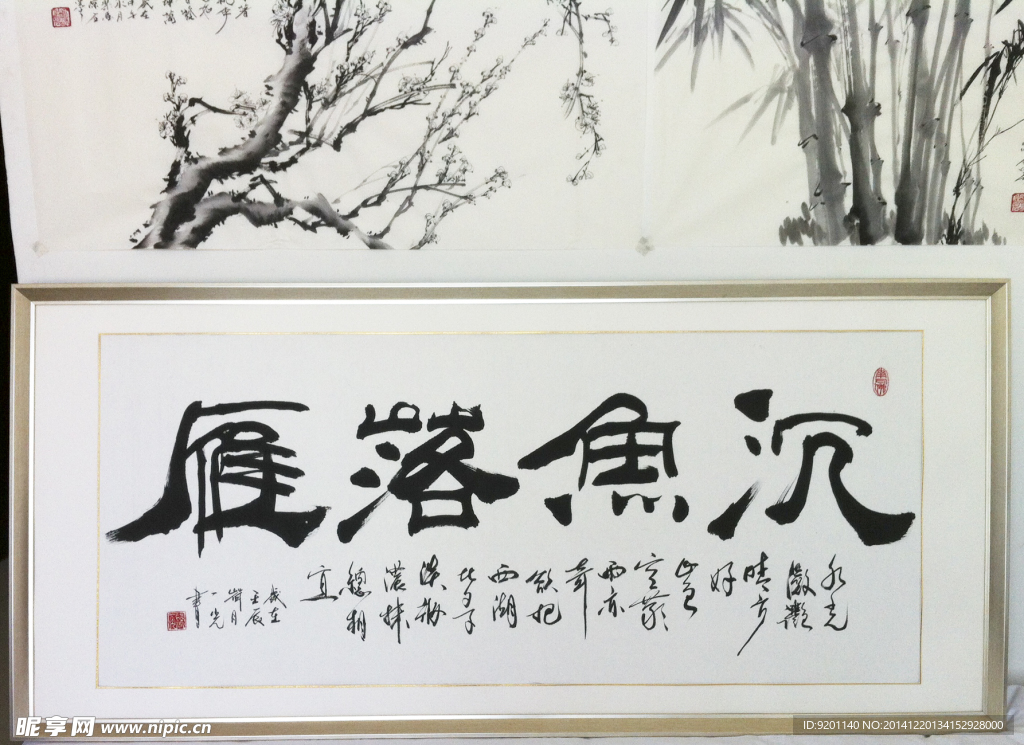 沉魚落雁
水光
瀲灩
晴方
好
山色
空蒙
雨亦
奇
欲把
西湖
比西子
淡妝
濃抹
總相
宜
歲在
壬辰
月
一光
書
昵享网 www.nipic.cn
ID:9201140 NO:20141220134152928000